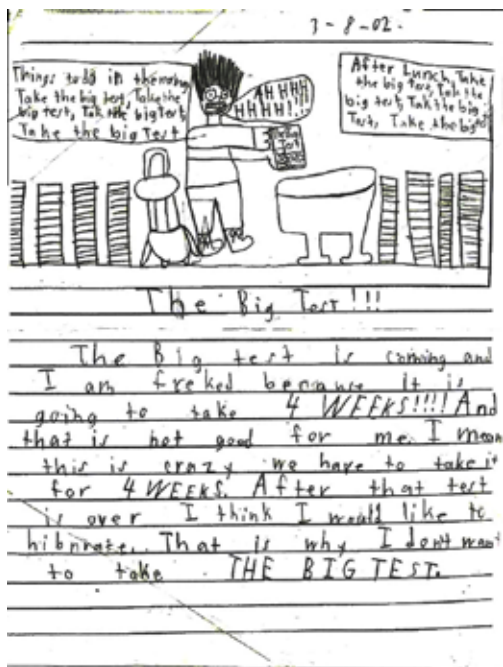 3-8-02.
Things to do in the morning
Take the big test, Take the
big test, Tak the big test
Take the big Test
AHHHH
HHHH!!!
The Big
Test
After Lunch, Take
the big Test, Take the
big test, Tak the big
Test, Take the big test
The Big Test!!!
The Big test is coming and
I am freked benause it is
going to take 4 WEEKS!!!! And
that is not good for me. I mean
this is crazy we have to take it
for 4 WEEKS. After that test
is over I think I would like to
hibnrate. That is why I don't want
to take THE BIG TEST.